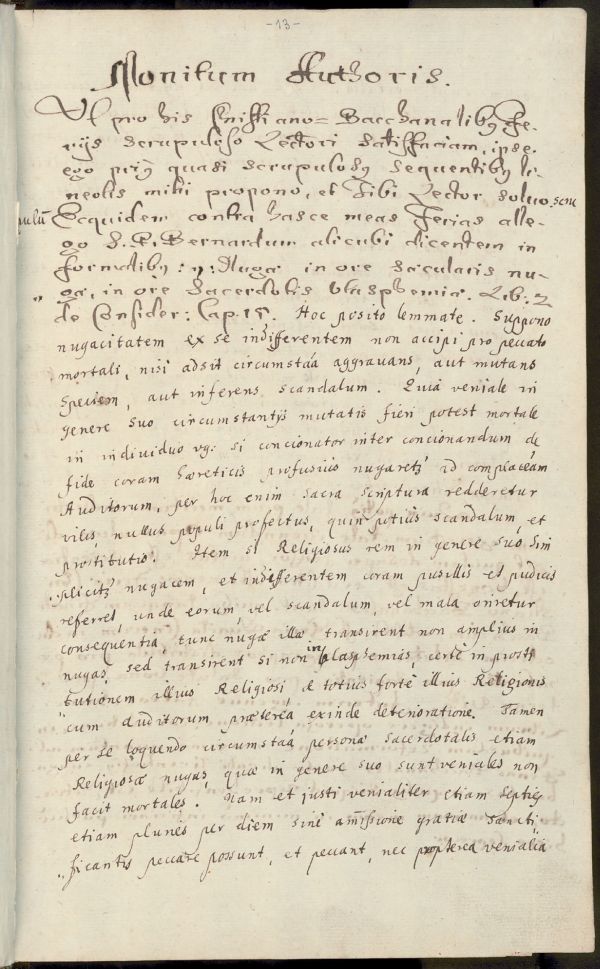 -13-
Monitum Authoris.
Ut pro his Kniffiano= Bacchanalibꝫ Fe-
rijs scrupuloso Lectori satisfaciam, ipse-
ego priꝫ quasi scrupulosꝫ sequentibꝫ li-
neolis mihi propono, et Tibi Lector solvo scru
pulū Ecquidem contra hasce meas Ferias alle-
go S. P. Bernardum alicubi dicentem in
formalibꝫ: Nugæ in ore sæcularis nu-
„ gæ, in ore Sacerdotis blasphemiæ. Lib: 2
de Consider: Cap. 15. Hoc posito lemmate. Suppono
nugacitatem ex se indifferentem non accipi pro peccato
mortali, nisi adsit circumstãa aggravans, aut mutans
speciem, aut inferens scandalum. Quia veniale in
genere suo circumstantijs mutatis fieri potest mortale
in individuo vg: si concionator inter concionandum de
fide coram hæreticis profusiùs nugaretꝫ ad complacẽam
Auditorum, per hoc enim sacra scriptura redderetur
vilis, nullus populi profectus, quin potiùs scandalum, et
prostitutio. Item si Religiosus rem in genere suo sim
plicitꝫ nugacem, et indifferentem coram pusillis et pudicis
referret, unde eorum, vel scandalum, vel mala oriretur
consequentia, tunc nugæ illæ transirent non amplius in
nugas, sed transirent si non in blasphemias, certè in prosti
tutionem illius Religiosi & totius fortè illius Religionis
cum auditorum præterèa exinde deterioratione. Tamen
per se loquendo circumstãa personæ sacerdotalis etiam
Religiosæ nugas, quæ in genere suo sunt veniales non
facit mortales. Nam et justi venialiter etiam septies
etiam pluries per diem sine amissione gratiæ Sancti-
ficantis peccare possunt, et peccant, nec propterea venialia